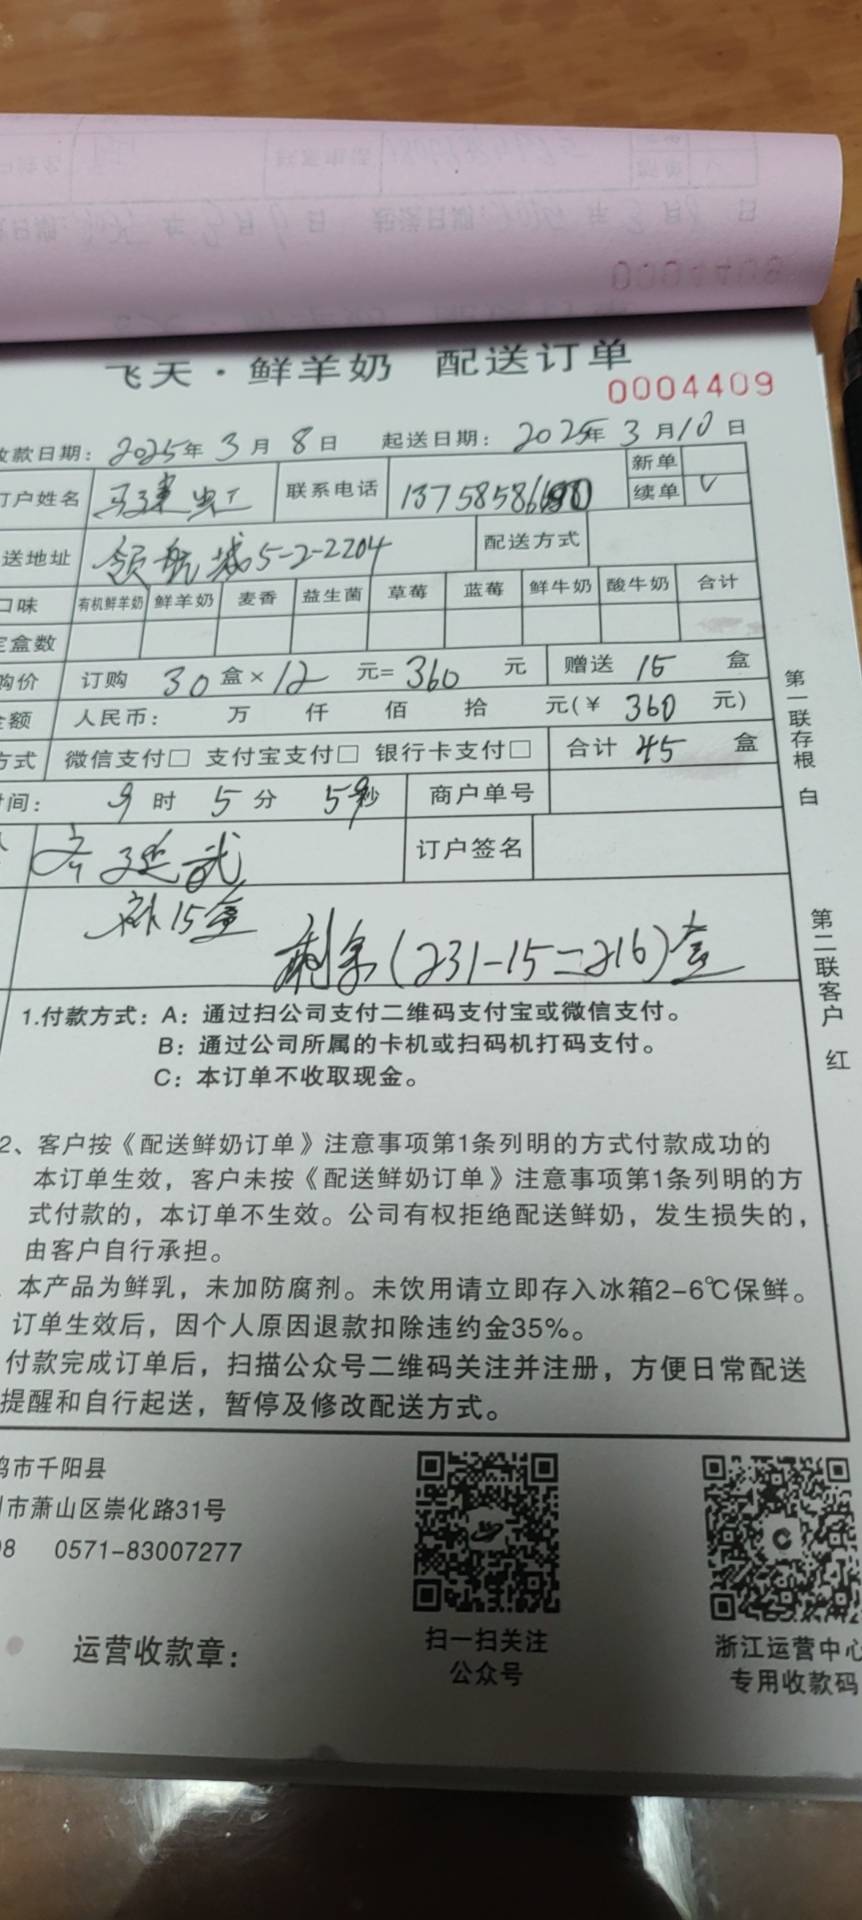 飞天·鲜羊奶 配送订单
0004409
收款日期：2025年3月8日 起送日期：2025年3月10日
订户姓名 联系电话 新单
续单 √
送地址 领航城5-2-2204 配送方式
口味 有机鲜羊奶 鲜羊奶 麦香 益生菌 草莓 蓝莓 鲜牛奶 酸牛奶 合计
定盒数
购价 订购 30 盒× 12 元= 360 元 赠送 15 盒
金额 人民币： 万 仟 佰 拾 元(¥ 360 元)
方式 微信支付□ 支付宝支付□ 银行卡支付□ 合计 45 盒
时间： 9 时 5 分 59秒 商户单号
齐延武 订户签名
补15盒
剩余(231-15=216)盒
第一联存根 白
第二联客户 红
1.付款方式：A：通过扫公司支付二维码支付宝或微信支付。
B：通过公司所属的卡机或扫码机打码支付。
C：本订单不收取现金。
2、客户按《配送鲜奶订单》注意事项第1条列明的方式付款成功的
本订单生效，客户未按《配送鲜奶订单》注意事项第1条列明的方
式付款的，本订单不生效。公司有权拒绝配送鲜奶，发生损失的，
由客户自行承担。
本产品为鲜乳，未加防腐剂。未饮用请立即存入冰箱2-6℃保鲜。
订单生效后，因个人原因退款扣除违约金35%。
付款完成订单后，扫描公众号二维码关注并注册，方便日常配送
提醒和自行起送，暂停及修改配送方式。
鸡市千阳县
州市萧山区崇化路31号
98 0571-83007277
运营收款章：
扫一扫关注
公众号
浙江运营中心
专用收款码